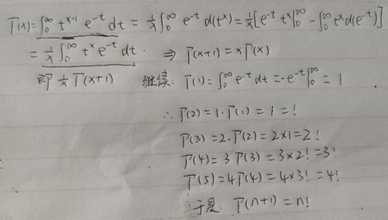 Γ(x)=∫₀^∞ t^(x-1) e^(-t) dt = 1/x ∫₀^∞ e^(-t) d(t^x) = 1/x [e^(-t) t^x |₀^∞ - ∫₀^∞ t^x d(e^(-t))]
= 1/x ∫₀^∞ t^x e^(-t) dt. ⇒ Γ(x+1) = xΓ(x)
即 1/x Γ(x+1) 继续 Γ(1)=∫₀^∞ e^(-t) dt = -e^(-t)|₀^∞ = 1
∴ Γ(2)=1·Γ(1)=1=!
Γ(3)=2·Γ(2)=2×1=2!
Γ(4)=3Γ(3)=3×2!=3!
Γ(5)=4Γ(4)=4×3!=4!
于是 Γ(n+1)=n!